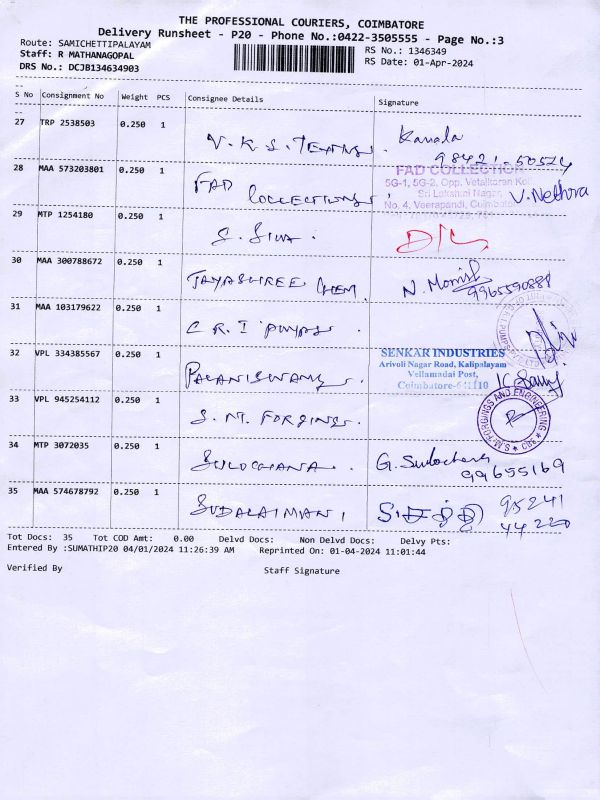 THE PROFESSIONAL COURIERS, COIMBATORE
Delivery Runsheet - P20 - Phone No.:0422-3505555 - Page No.:3
Route: SAMICHETTIPALAYAM
RS No.: 1346349
Staff: R MATHANAGOPAL
RS Date: 01-Apr-2024
DRS No.: DCJB134634903
S No Consignment No Weight PCS Consignee Details Signature
27 TRP 2538503 0.250 1 V.K.S. TEXTNGS. Kamala
98421-50574
28 MAA 573203801 0.250 1 FAD COLLECTIONS, V. Nethra
FAD COLLECTION
5G-1, 5G-2, Opp. Vetaikaran Koil
Sri Lakshmi Nagar,
No. 4, Veerapandi, Coimbatore
29 MTP 1254180 0.250 1 S. SIVA. D/L
30 MAA 300788672 0.250 1 JAYASHREE CHEM.
9965590888
31 MAA 103179622 0.250 1 C.R.I PUMPS.
32 VPL 334385567 0.250 1 PALANISWAMY.
SENKAR INDUSTRIES
Arivoli Nagar Road, Kalipalayam
Vellamadai Post,
Coimbatore-641110
33 VPL 945254112 0.250 1 S.M. FORGINGS.
S.M. FORGINGS AND ENGINEERING
34 MTP 3072035 0.250 1 SULOCHANA. G. Sulochana
99655169
35 MAA 574678792 0.250 1 SUDALAIMANI 95241
44220
Tot Docs: 35 Tot COD Amt: 0.00 Delvd Docs: Non Delvd Docs: Delvy Pts:
Entered By :SUMATHIP20 04/01/2024 11:26:39 AM Reprinted On: 01-04-2024 11:01:44
Verified By Staff Signature